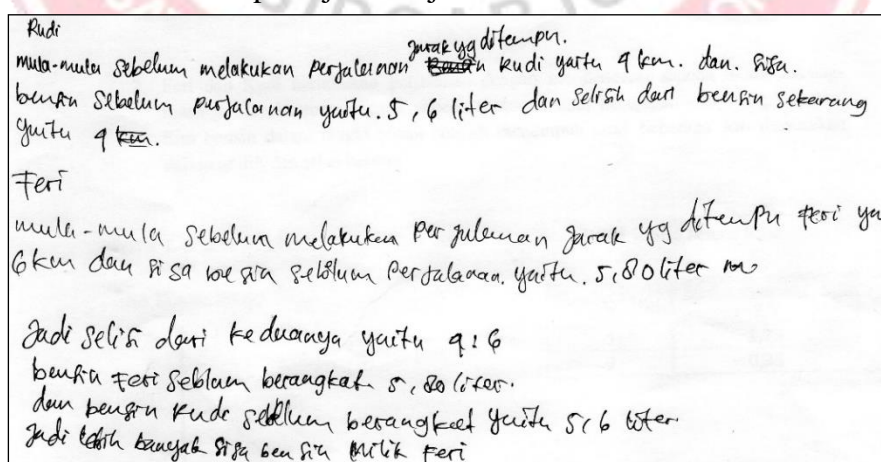 Rudi
mula-mula sebelum melakukan perjalanan jarak yg ditempu. Rudi yaitu 9 km. dan. sisa.
bensin sebelum perjalanan yaitu. 5,6 liter dan selisih dari bensin sekarang
yaitu 9 km.
Feri
mula-mula sebelum melakukan perjalanan jarak yg ditempu feri ya
6 km dan sisa sebelum perjalanan. yaitu. 5,80 liter
Jadi selisi dari keduanya yaitu 9:6
bensin Feri seblum berangkat 5,80 liter.
dan bengsin Rudi sebelum berangkat yaitu 5,6 liter
Jadi lebih banyak sisa bensin milik Feri